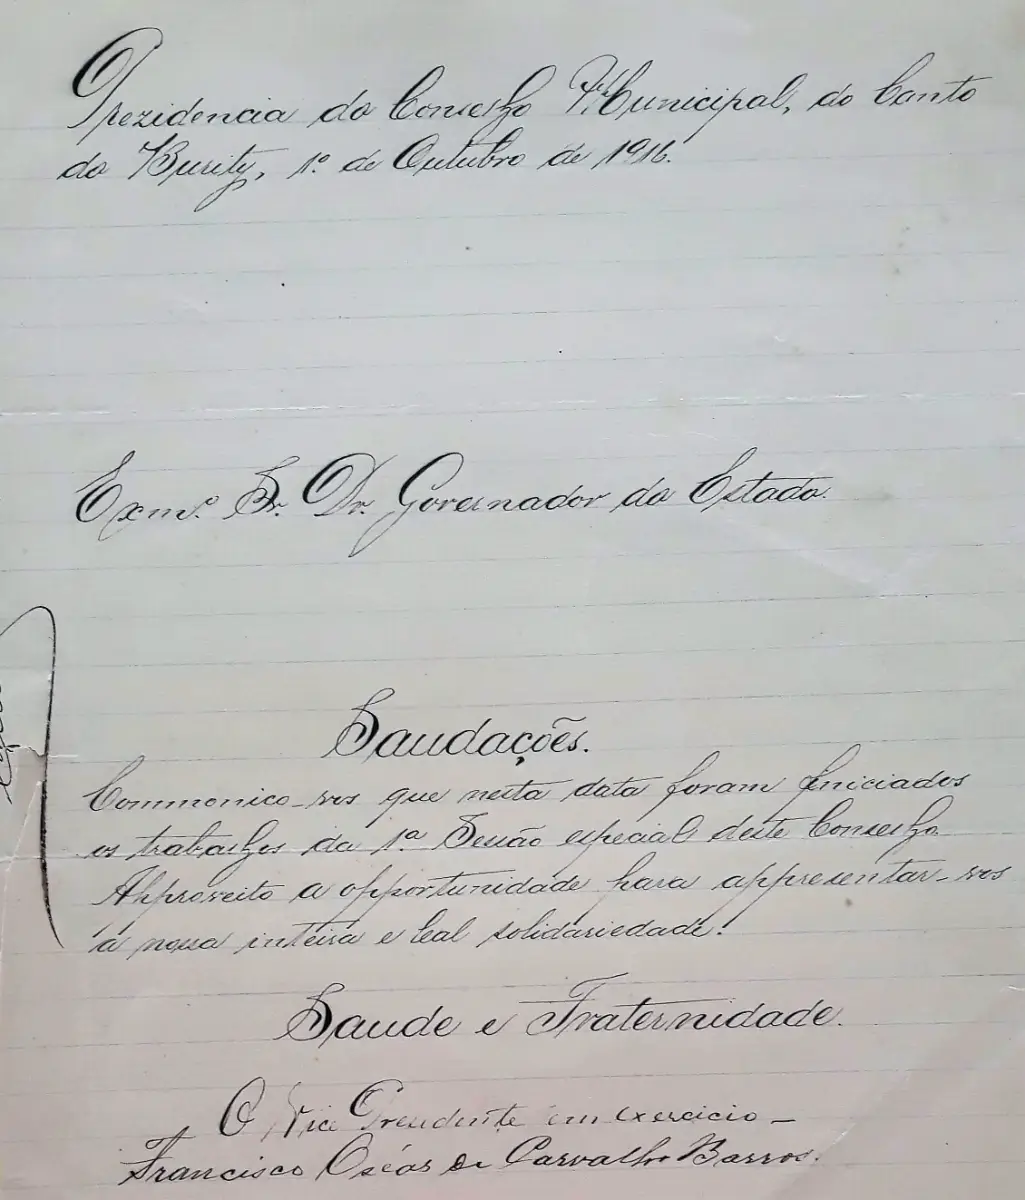 Prezidencia do Conselho Municipal, do Canto
do Burity, 1º de Outubro de 1916.
Exmº Sr. Dr. Governador do Estado.
Saudações.
Commonico-vos que nesta data foram iniciados
os trabalhos da 1ª Sessão especial deste Conselho.
Approveito a opportunidade para appresentar-vos
a nossa inteira e leal solidariedade.
Saude e Fraternidade.
O Vice Presidente em exercicio –
Francisco Oscar de Carvalho Barros.